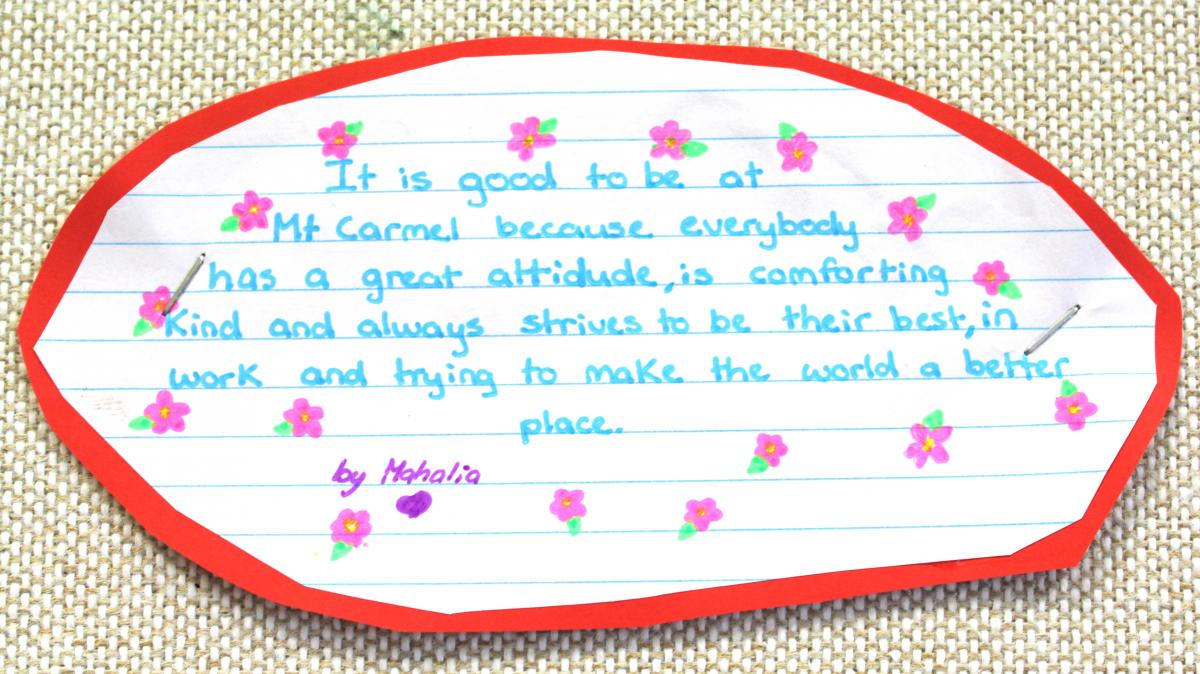 It is good to be at
Mt Carmel because everybody
has a great attidude, is comforting
Kind and always strives to be their best, in
work and trying to make the world a better
place.
by Mahalia